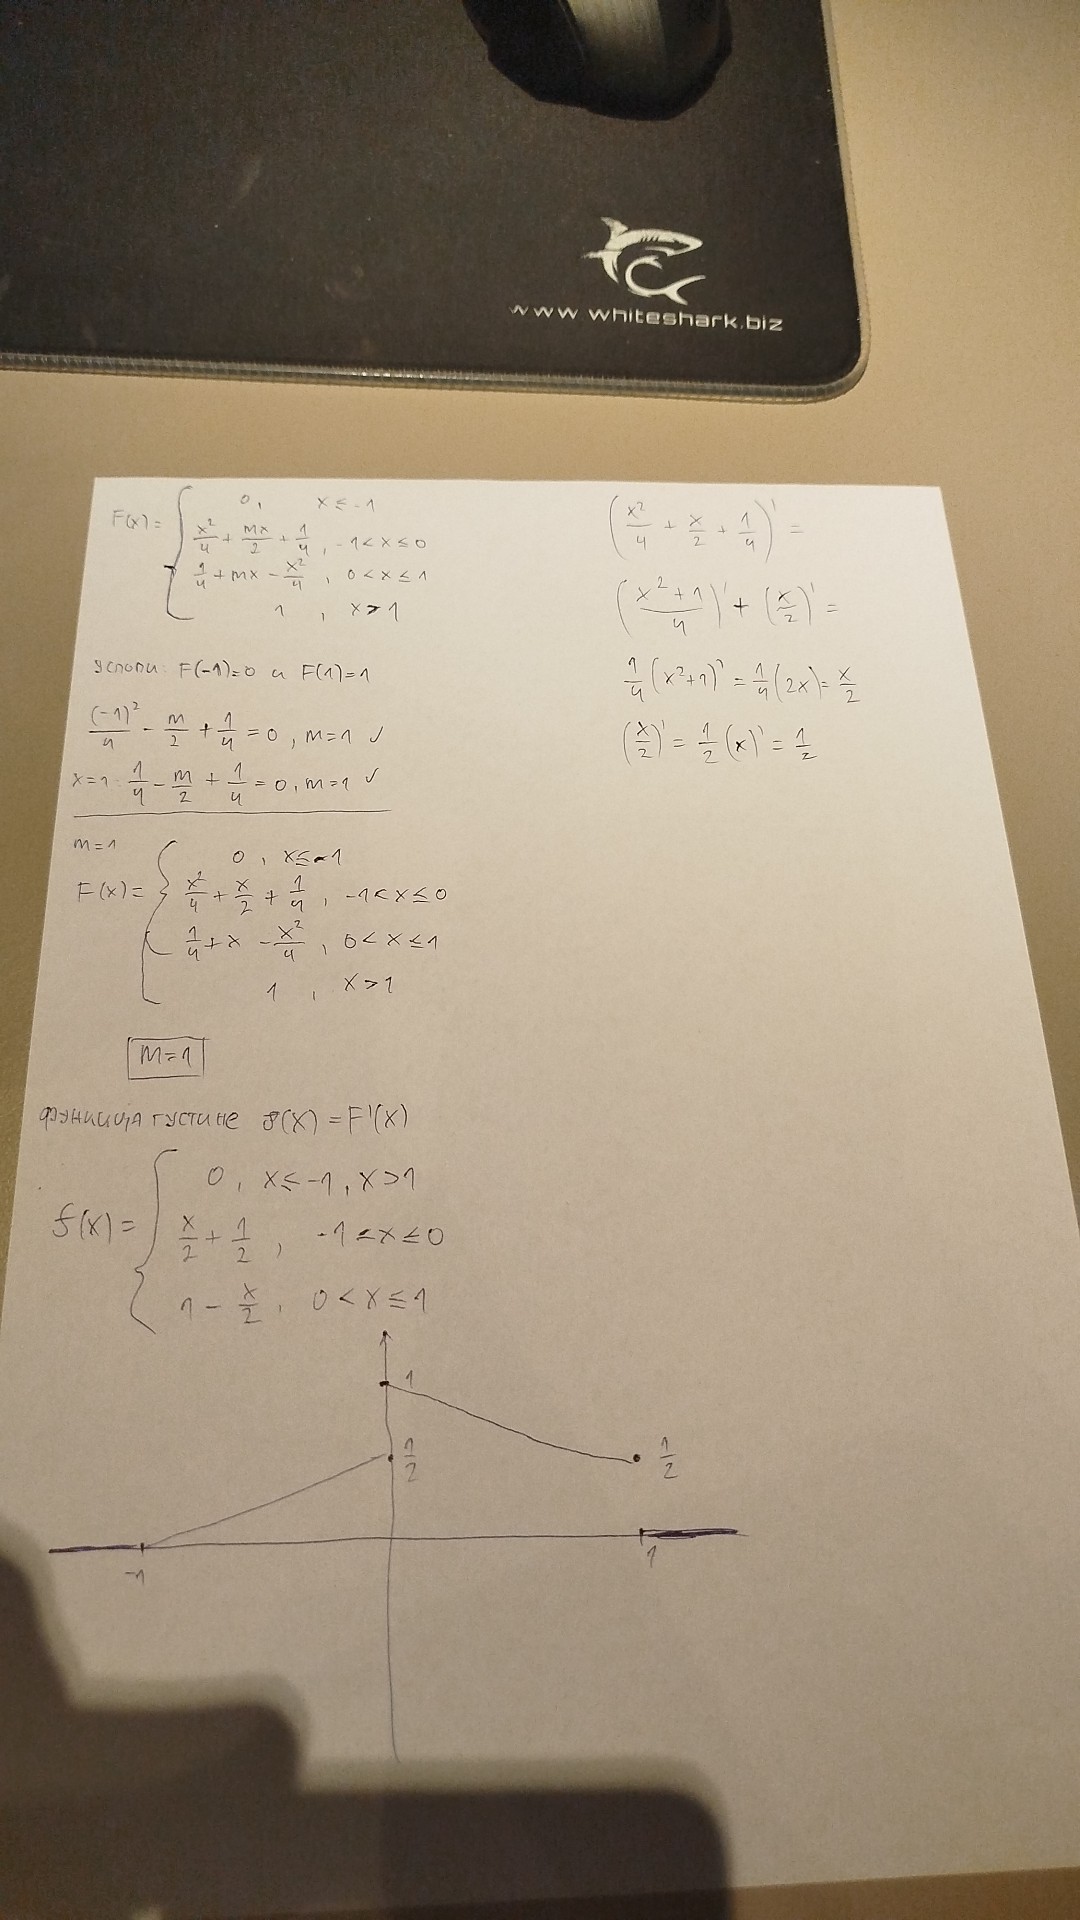 www whiteshark.biz
F(x) = { 0, x ≤ -1
x²/4 + mx/2 + 1/4, -1 < x ≤ 0
1/4 + mx - x²/4, 0 < x ≤ 1
1, x > 1
Услови: F(-1)=0 и F(1)=1
(-1)²/4 - m/2 + 1/4 = 0, m=1 ✓
x=1: 1/4 - m/2 + 1/4 = 0, m=1 ✓
m=1
F(x) = { 0, x ≤ -1
x²/4 + x/2 + 1/4, -1 < x ≤ 0
1/4 + x - x²/4, 0 < x ≤ 1
1, x > 1
m=1
функција густине f(x) = F'(x)
f(x) = { 0, x ≤ -1, x > 1
x/2 + 1/2, -1 < x ≤ 0
1 - x/2, 0 < x ≤ 1
1
1/2
1/2
-1
1
(x²/4 + x/2 + 1/4)' =
((x²+1)/4)' + (x/2)' =
1/4 (x²+1)' = 1/4 (2x) = x/2
(x/2)' = 1/2 (x)' = 1/2